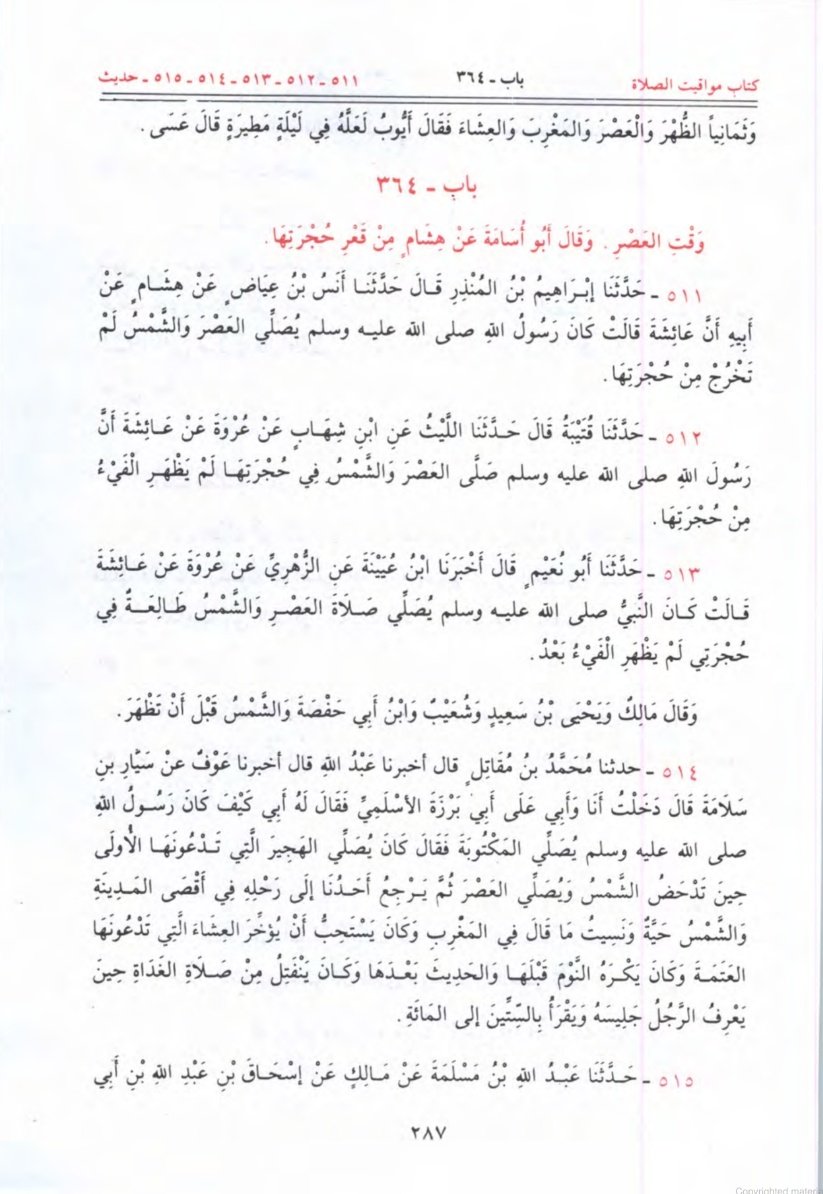 كتاب مواقيت الصلاة باب ـ ٣٦٤ ٥١١ ـ ٥١٢ ـ ٥١٣ ـ ٥١٤ ـ ٥١٥ ـ حديث
وَثَمَانِياً الظُّهْرَ وَالْعَصْرَ وَالمَغْرِبَ وَالعِشَاءَ فَقَالَ أَيُّوبُ لَعَلَّهُ فِي لَيْلَةٍ مَطِيرَةٍ قَالَ عَسَى .
باب ـ ٣٦٤
وَقْتِ العَصْرِ . وَقَالَ أَبُو أُسَامَةَ عَنْ هِشَامٍ مِنْ قَعْرِ حُجْرَتِهَا.
٥١١ ـ حَدَّثَنَا إبْرَاهِيمُ بْنُ المُنْذِرِ قَالَ حَدَّثَنَا أَنَسُ بْنُ عِيَاضٍ عَنْ هِشَامٍ عَنْ
أَبِيهِ أَنَّ عَائِشَةَ قَالَتْ كَانَ رَسُولُ اللهِ صلى الله عليه وسلم يُصَلِّي العَصْرَ وَالشَّمْسُ لَمْ
تَخْرُجْ مِنْ حُجْرَتِهَا.
٥١٢ ـ حَدَّثَنَا قُتَيْبَةُ قَالَ حَدَّثَنَا اللَّيْثُ عَنِ ابْنِ شِهَابٍ عَنْ عُرْوَةَ عَنْ عَائِشَةَ أَنَّ
رَسُولَ اللهِ صلى الله عليه وسلم صَلَّى العَصْرَ وَالشَّمْسُ فِي حُجْرَتِهَا لَمْ يَظْهَرِ الْفَيْءُ
مِنْ حُجْرَتِهَا.
٥١٣ ـ حَدَّثَنَا أَبُو نُعَيْمٍ قَالَ أَخْبَرَنَا ابْنُ عُيَيْنَةَ عَنِ الزُّهْرِيِّ عَنْ عُرْوَةَ عَنْ عَائِشَةَ
قَالَتْ كَانَ النَّبِيُّ صلى الله عليه وسلم يُصَلِّي صَلَاةَ العَصْرِ وَالشَّمْسُ طَالِعَةٌ فِي
حُجْرَتِي لَمْ يَظْهَرِ الْفَيْءُ بَعْدُ.
وَقَالَ مَالِكٌ وَيَحْيَى بْنُ سَعِيدٍ وَشُعَيْبٌ وَابْنُ أَبِي حَفْصَةَ وَالشَّمْسُ قَبْلَ أَنْ تَظْهَرَ.
٥١٤ ـ حدثنا مُحَمَّدُ بنُ مُقَاتِلٍ قال أخبرنا عَبْدُ اللهِ قال أخبرنا عَوْفٌ عنْ سَيَّارِ بنِ
سَلَامَةَ قَالَ دَخَلْتُ أَنَا وَأَبِي عَلَى أَبِي بَرْزَةَ الأسْلَمِيِّ فَقَالَ لَهُ أَبِي كَيْفَ كَانَ رَسُولُ اللهِ
صلى الله عليه وسلم يُصَلِّي المَكْتُوبَةَ فَقَالَ كَانَ يُصَلِّي الهَجِيرَ الَّتِي تَدْعُونَهَا الأُولَى
حِينَ تَدْحَضُ الشَّمْسُ وَيُصَلِّي العَصْرَ ثُمَّ يَرْجِعُ أَحَدُنَا إلَى رَحْلِهِ فِي أَقْصَى المَدِينَةِ
وَالشَّمْسُ حَيَّةٌ وَنَسِيتُ مَا قَالَ فِي المَغْرِبِ وَكَانَ يَسْتَحِبُّ أَنْ يُؤَخِّرَ العِشَاءَ الَّتِي تَدْعُونَهَا
العَتَمَةَ وَكَانَ يَكْرَهُ النَّوْمَ قَبْلَهَا وَالحَدِيثَ بَعْدَهَا وَكَانَ يَنْفَتِلُ مِنْ صَلَاةِ الغَدَاةِ حِينَ
يَعْرِفُ الرَّجُلُ جَلِيسَهُ وَيَقْرَأُ بِالسِّتِّينَ إلى المَائَةِ.
٥١٥ ـ حَدَّثَنَا عَبْدُ اللهِ بْنُ مَسْلَمَةَ عَنْ مَالِكٍ عَنْ إسْحَاقَ بْنِ عَبْدِ اللهِ بْنِ أَبِي
٢٨٧
Copyrighted mater